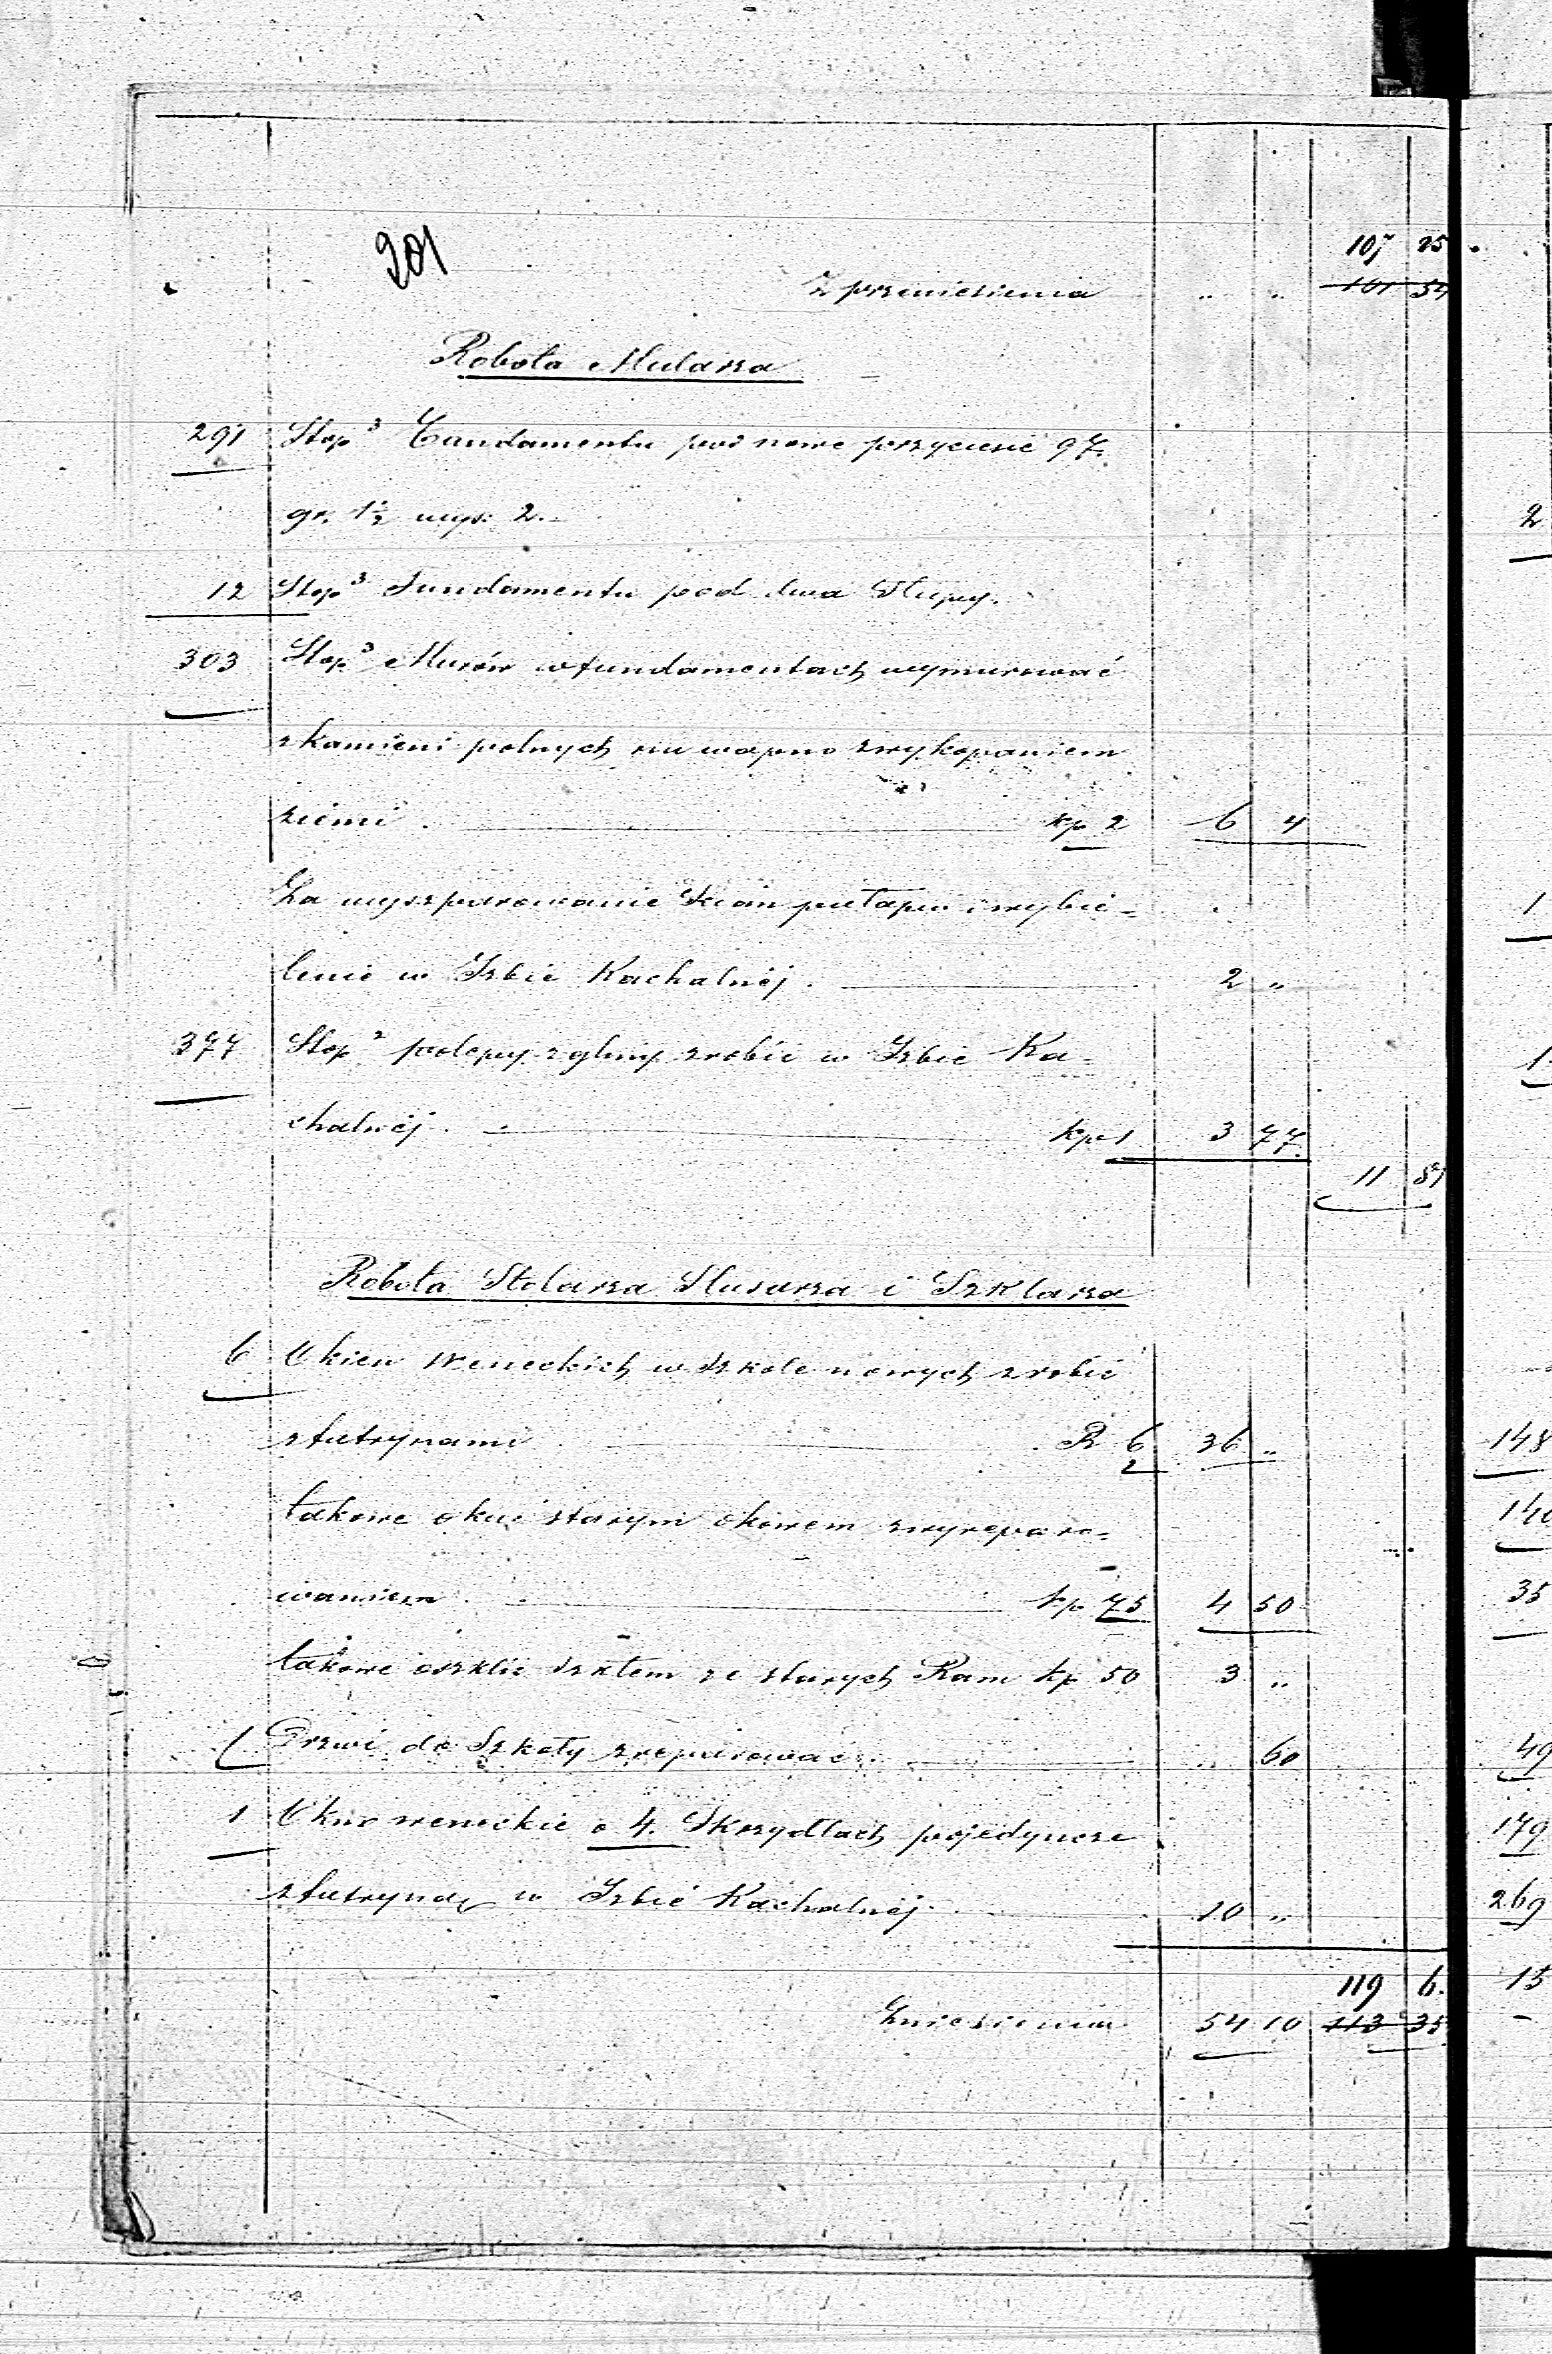 107 25
201
Z przeniesienia " " 101 54
Robota Mularza
291 Stop³ Fundamentu pod nowe przyciesie 97.
gr. 1½ wys: 2.
12 Stop³ Fundamentu pod dwa Słupy.
303 Stop³ Murów w fundamentach wymurować
z kamieni polnych na wapno z wykopaniem
ziemi. kp 2 6 4
Za wyszparowanie Ścian pułapu i wybie=
lenie w Izbie Kachalnéj. 2 "
377 Stop² polepy z gliny zrobić w Izbie Ka=
chalnéj. kp 1 3 77.
11 81
Robota Stolarza Slusarza i Szklarza
6 Okien weneckich w Szkole nowych zrobić
z futrynami R 6 36 "
takowe okuć starym okowem z wyreparo=
waniem. kp 75 4 50
takowe oszklić szkłem ze starych Ram kp 50 3 "
1 Drzwi do Szkoły zreparować. " 60
1 Okno weneckie o 4. Skrzydłach pojedyncze
z futryną w Izbié Kachalnéj. 10 "
119 6.
Zniesienia 54 10 113 35
2
1
1
148
140
35
49
179
269
15